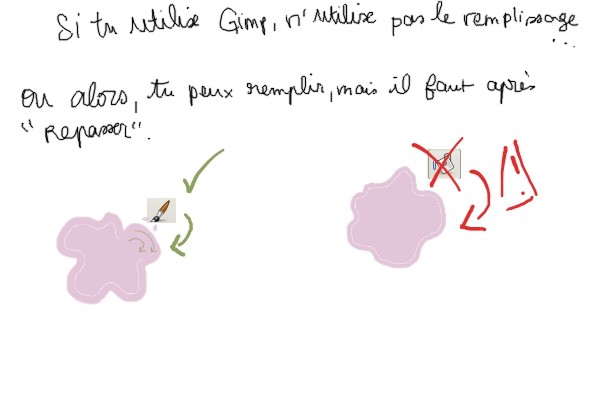 Si tu utilise Gimp, n'utilise pas le remplissage
...
ou alors, tu peux remplir, mais il faut après
"Repasser".